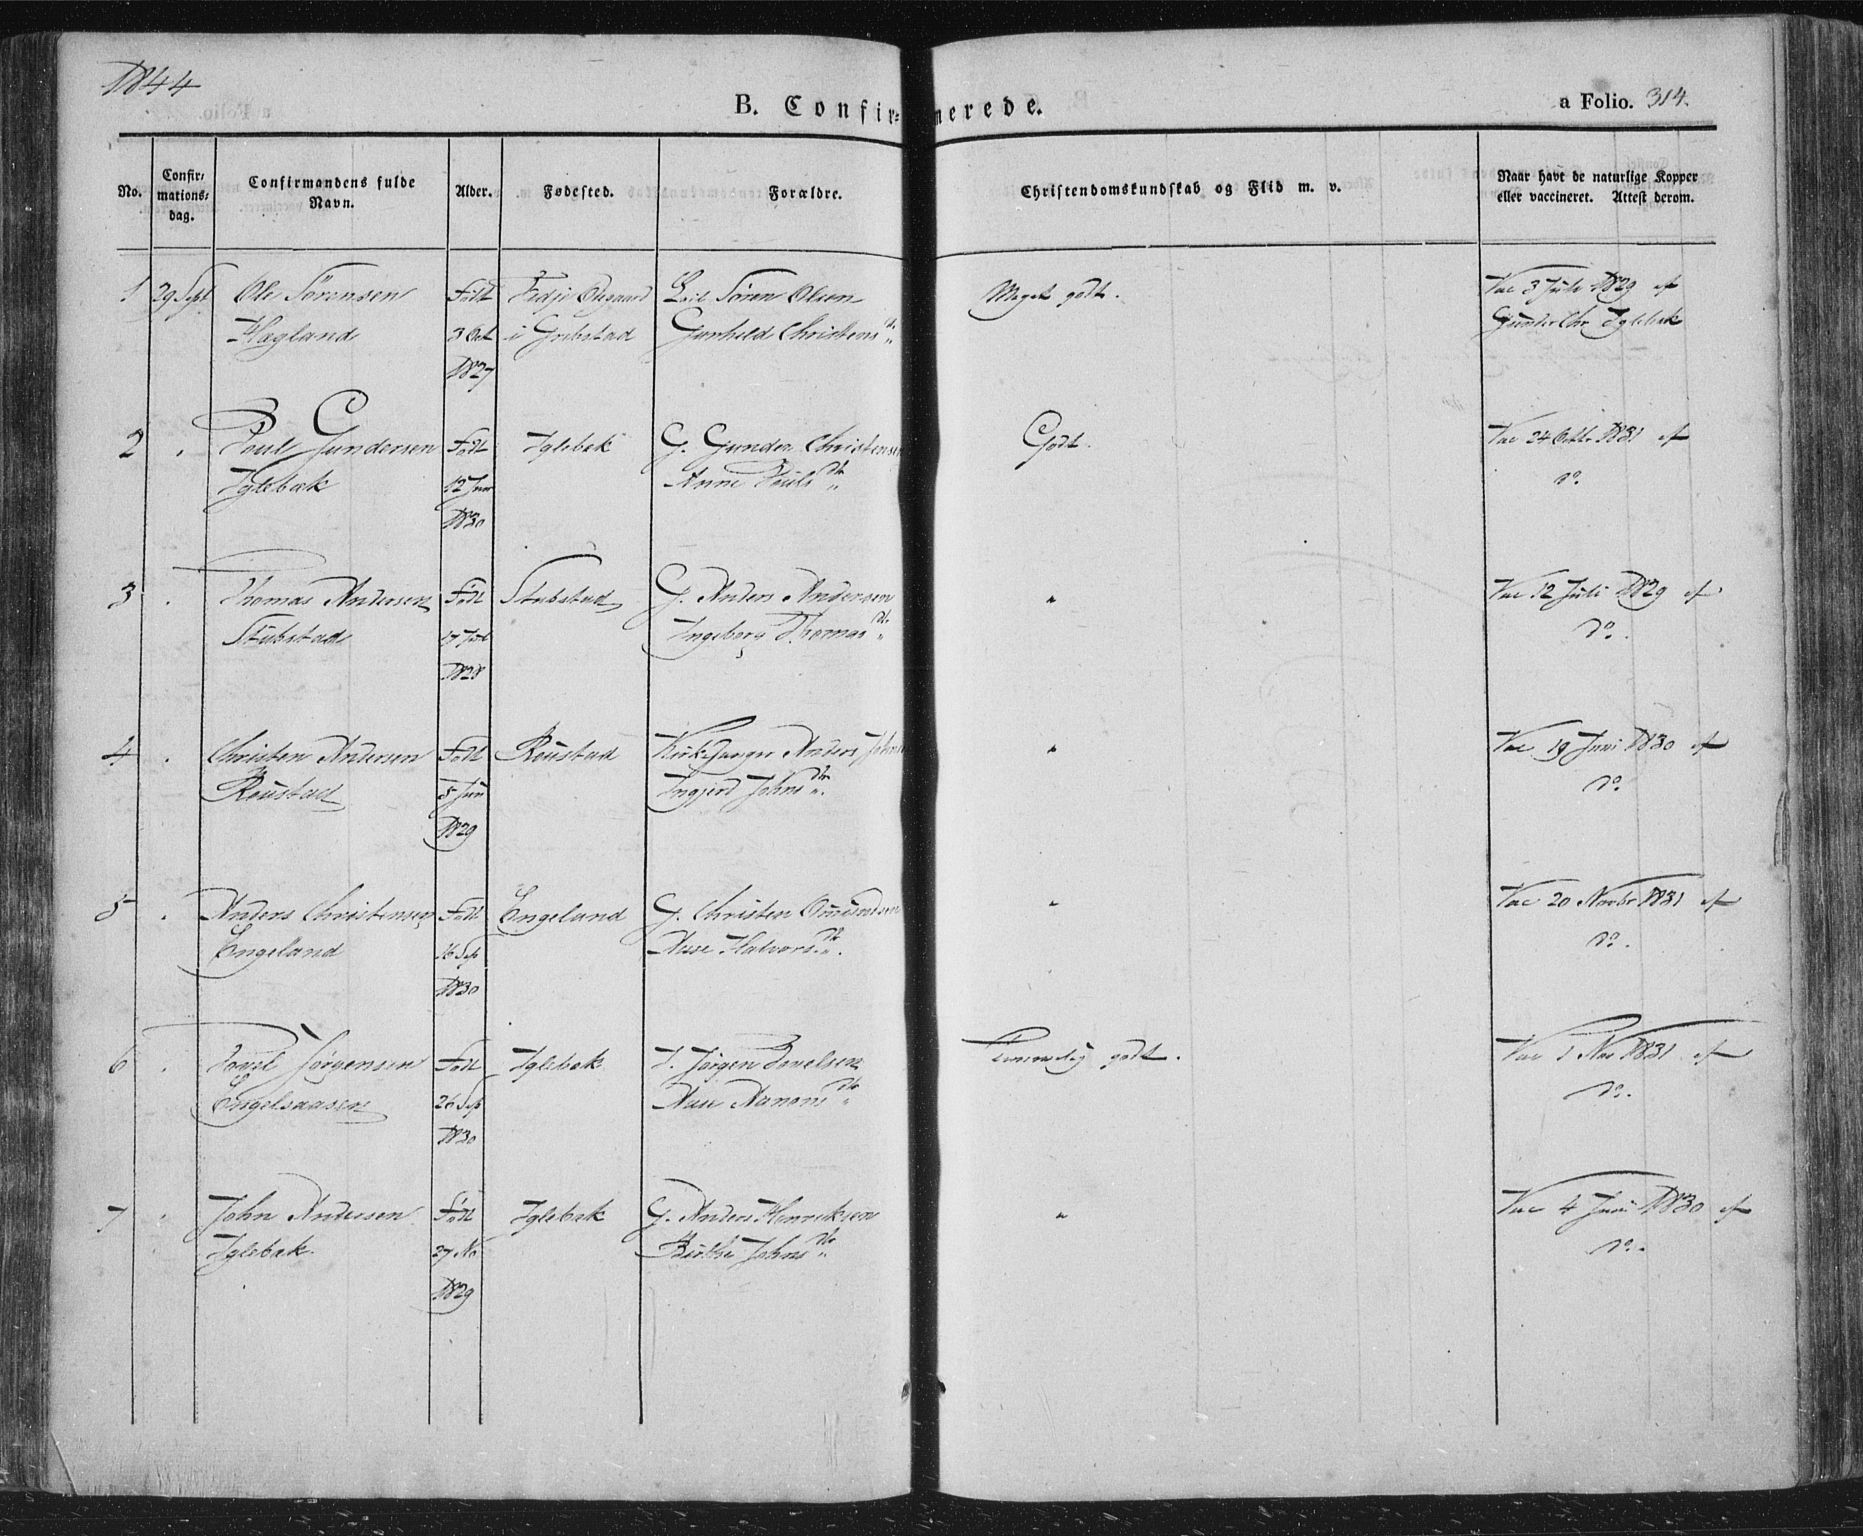 1844
B. Confirmerede.
a Folio. 314.
No.
Confir-
mations-
dag.
Confirmandens fulde
Navn.
Alder.
Fødested.
Forældre.
Christendomskundskab og Flid m. v.
Naar havt de naturlige Kopper
eller vaccineret. Attest derom.
1 29 Sept. Ole Sørensen Født Søren Olsen Meget godt. Vac 3 Juli 1829 af
Hægland 3 Oct i Grebstad Gunhild Christensdr. Gunder Chr Iglebæk
1827
2 Poul Gundersen Født Iglebæk G. Gunder Christensen Godt. Vac 24 Octbr 1831 af
Iglebæk 12 Jun Anne Poulsdr. do.
1830
3 Thomas Andersen Født Stubstad G. Anders Andersen " Vac 12 Juli 1829 af
Stubstad 17 Ingeborg Thomasdr. do.
1828
4 Christen Andersen Født Røustad Kirkesanger Anders Johns " Vac 19 Juni 1830 af
Røustad 5 Jun Ingjerd Johnsdr. do.
1829
5 Anders Christensen Født Engeland G. Christen Omundsen " Vac 20 Novbr 1831 af
Engeland 16 Sep Aase Halvorsdr. do.
1830
6 Jørgensen Født Iglebæk Jørgen godt. Vac 1 Nov 1831 af
Engelsaasen 26 Sep Aase Aanonsdr. do.
1830
7 John Andersen Født Iglebæk G. Anders Henriksen " Vac 4 Juni 1830 af
Iglebæk 27 No Birthe Johnsdr. do.
1829